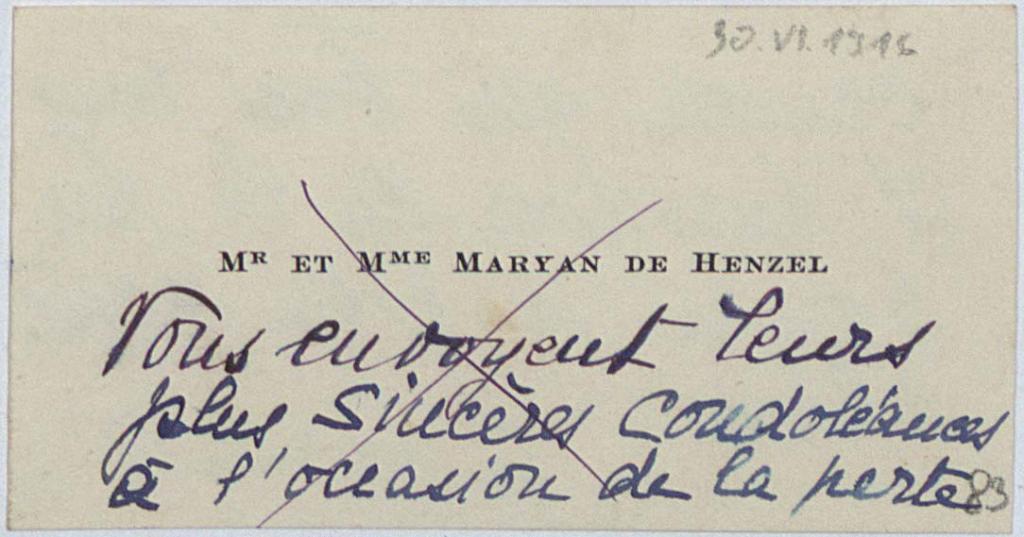 30.VI.1916
MR ET MME MARYAN DE HENZEL
Vous envoyent leurs
plus sincères condoléances
à l'occasion de la perte
83